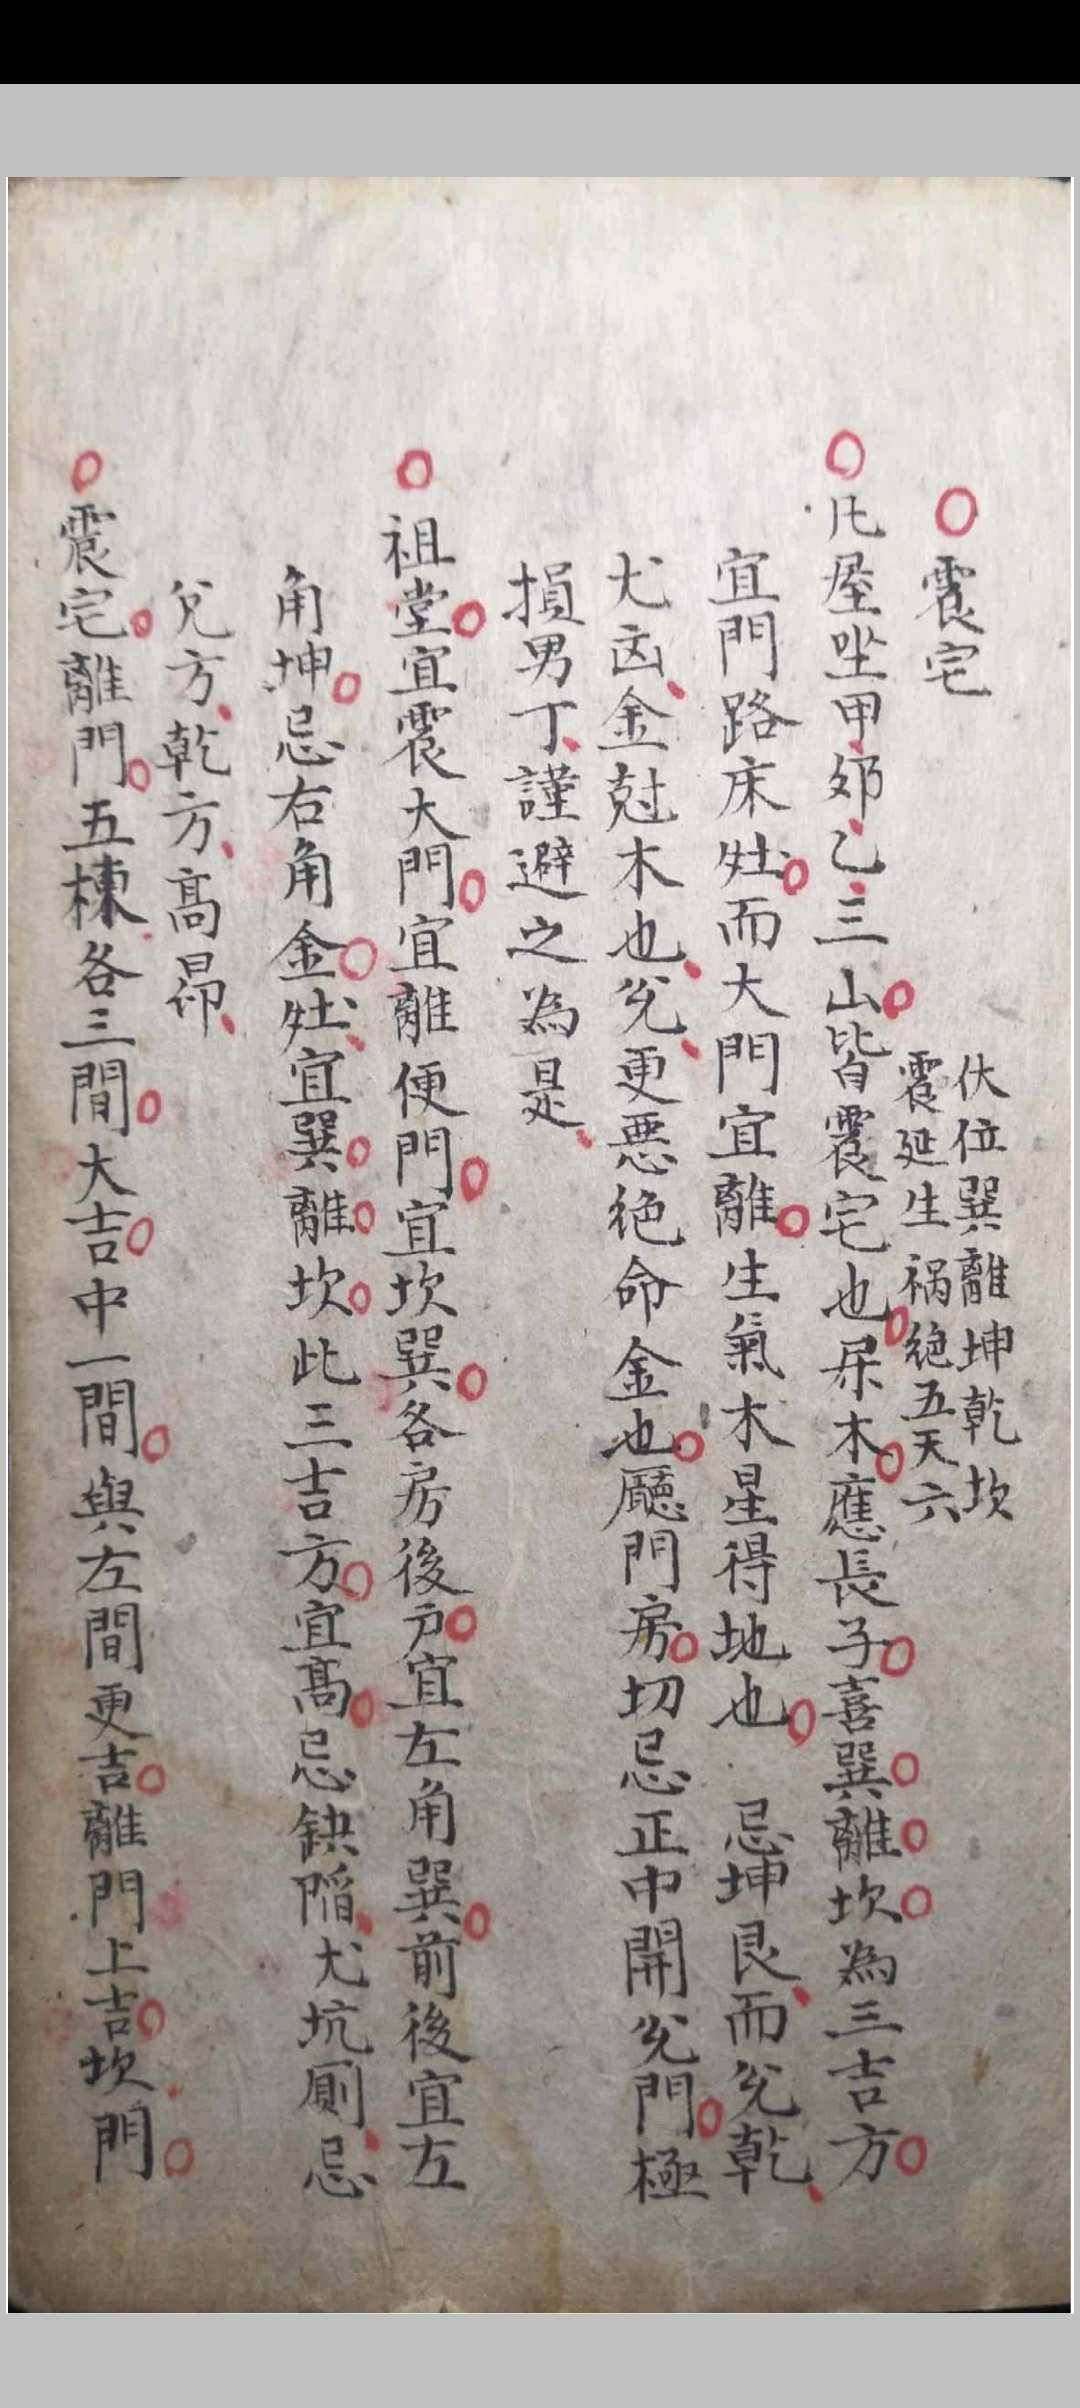 震宅
伏位巽離坤乾坎
震延生禍絶五天六
凡屋坐甲卯乙三山皆震宅也屬木應長子喜巽離坎為三吉方
宜門路床灶而大門宜離生氣木星得地也 忌坤艮而兌乾
尤凶金尅木也兌更惡絶命金也廳門房切忌正中開兌門極
損男丁謹避之為是
祖堂宜震大門宜離便門宜坎巽各房後戶宜左角巽前後宜左
角坤忌右角金灶宜巽離坎此三吉方宜髙忌缺陷尤坑厠忌
兌方乾方髙昂
震宅離門五棟各三間大吉中一間與左間更吉離門上吉坎門